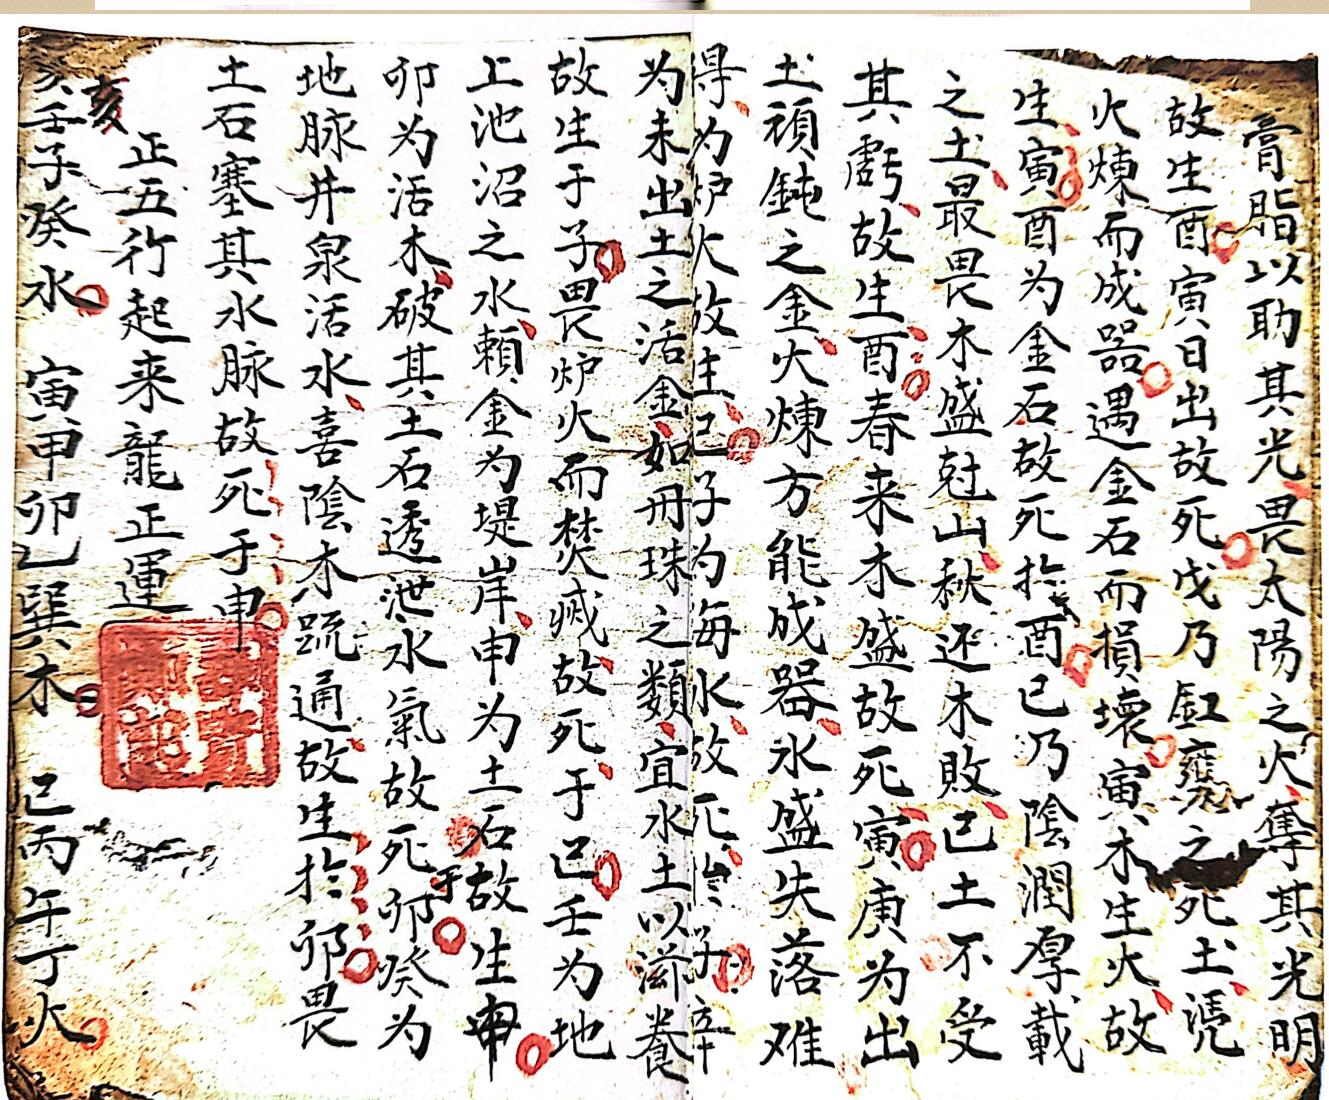 膏脂以助其光畏太陽之火奪其光明
故生酉寅日出故死戊乃缸甕之死土凭
火煉而成器遇金石而損壞寅木生火故
生寅酉为金石故死扵酉己乃陰潤厚載
之土最畏木盛尅山秋还木敗己土不受
其虧故生酉春来木盛故死寅庚为出
土頑鈍之金火煉方能成器水盛失落难
得为炉火故生巳子为海水故死扵子辛
为未出土之活金如丹珠之類宜水土以滋養
故生于子畏炉火而焚滅故死于巳壬为地
上池沼之水賴金为堤岸申为土石故生申
卯为活木破其土石透泄水氣故死于卯癸为
地脉井泉活水喜陰木疏通故生扵卯畏
土石塞其水脉故死于申
正五行起来龍正運
亥壬子癸水 寅甲卯乙巽木 巳丙午丁火